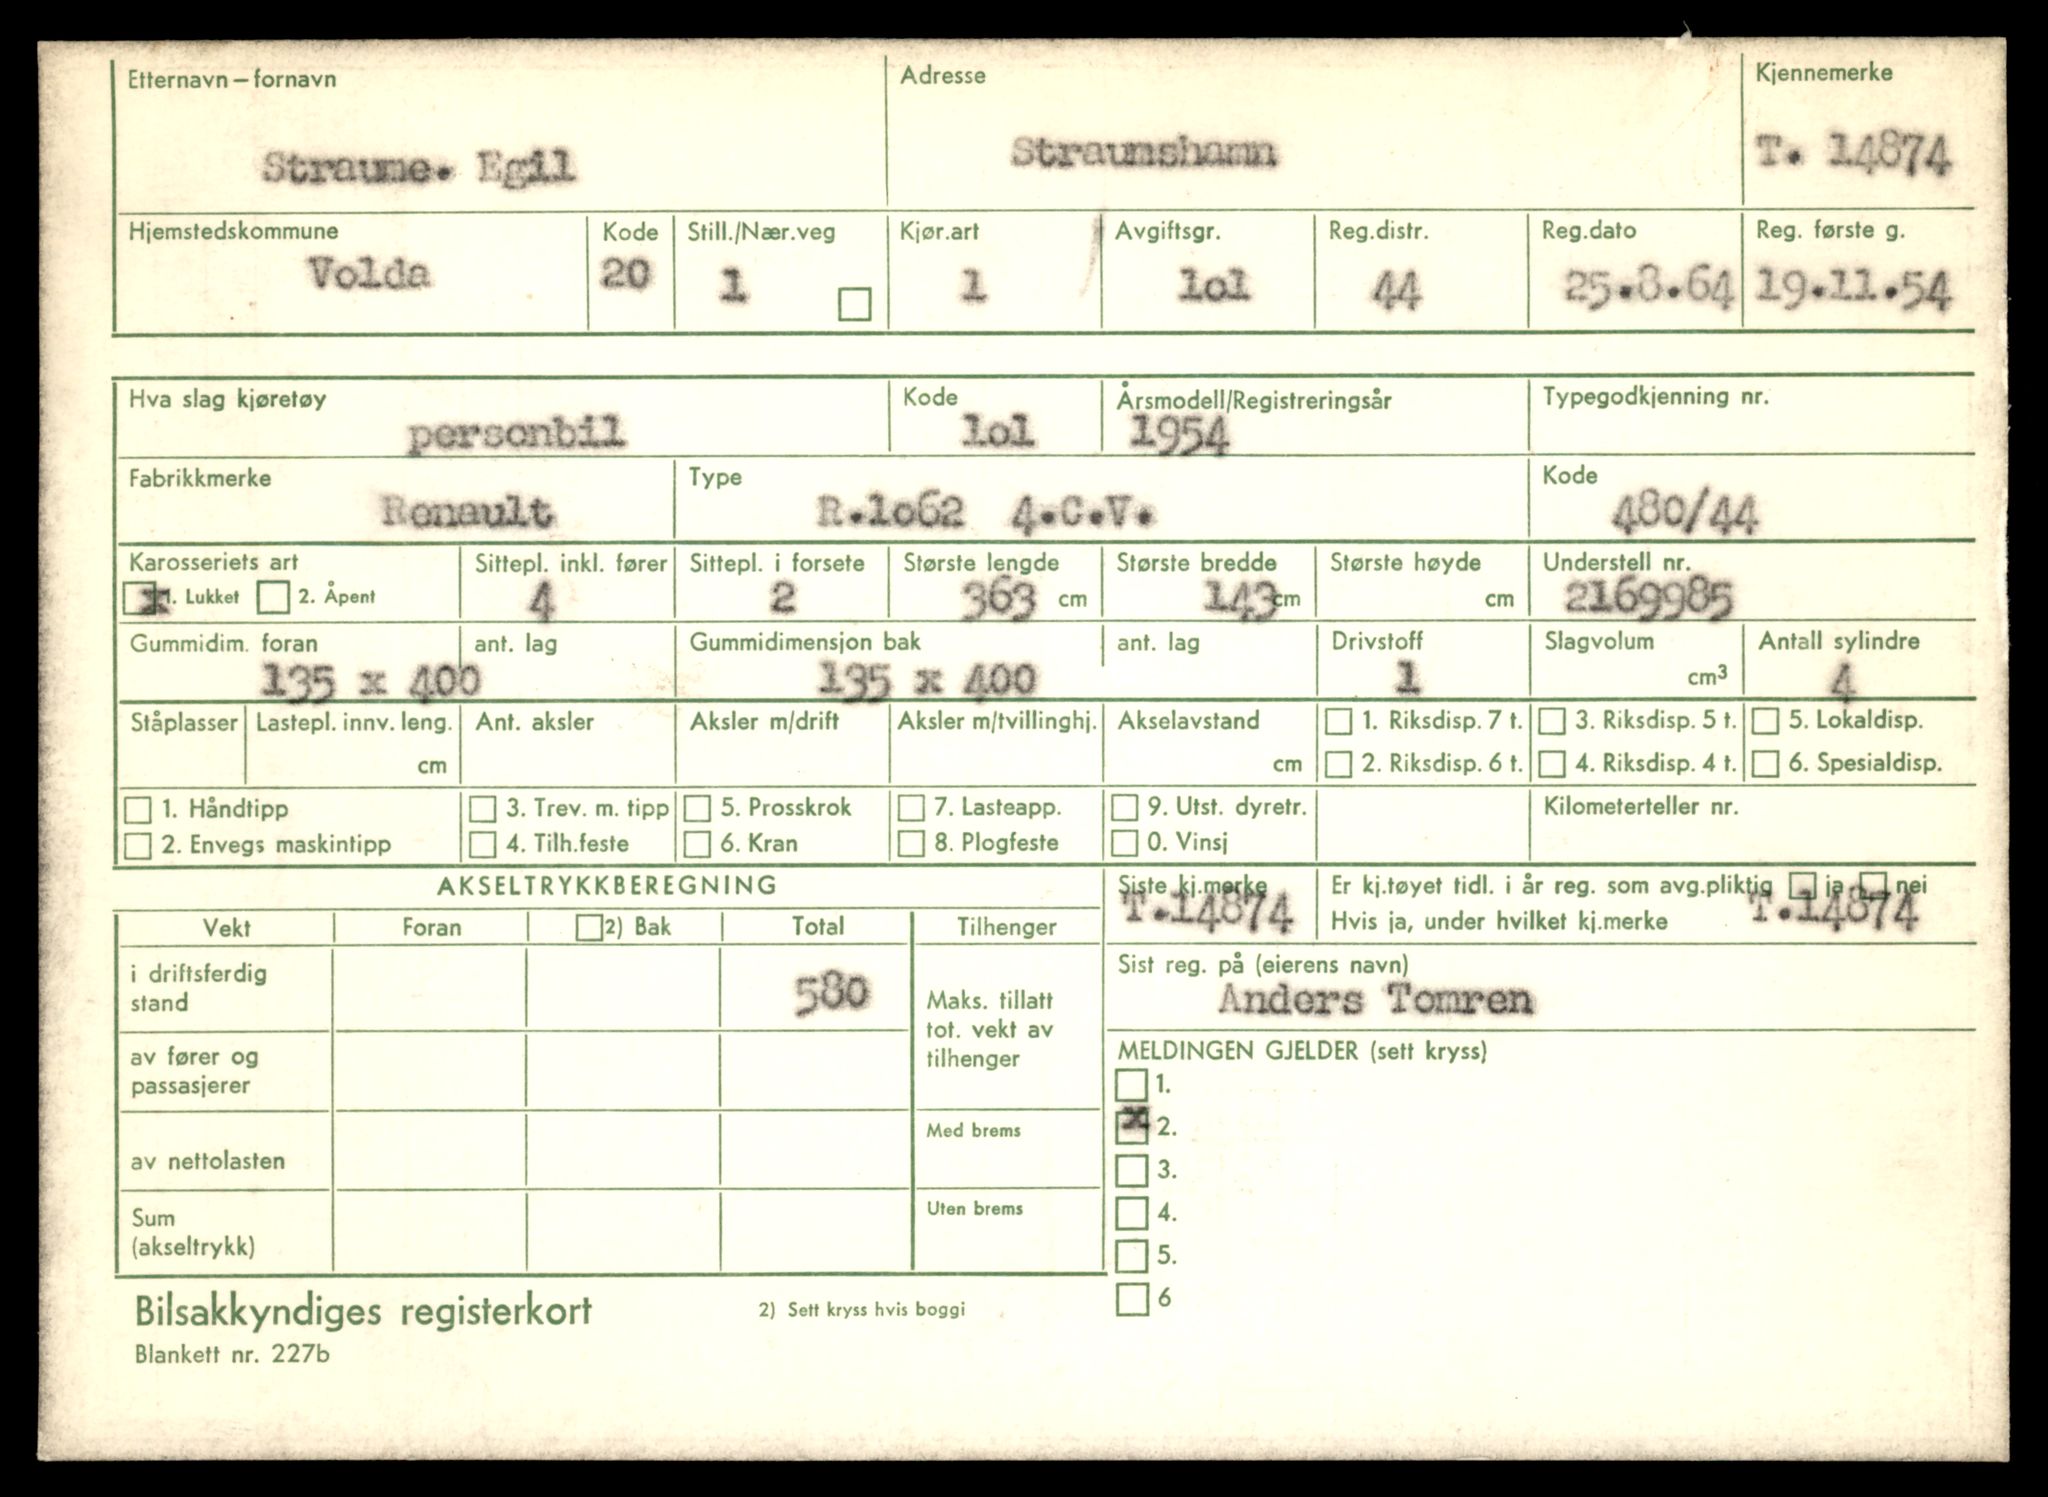 Etternavn – fornavn Adresse Kjennemerke
Straume. Egil Straumshamn T. 14874
Hjemstedskommune Kode Still./Nær.veg Kjør.art Avgiftsgr. Reg.distr. Reg.dato Reg. første g.
Volda 20 1 1 lol 44 25.8.64 19.11.54
Hva slag kjøretøy Kode Årsmodell/Registreringsår Typegodkjenning nr.
personbil lol 1954
Fabrikkmerke Type Kode
Renault R.1o62 4.C.V. 480/44
Karosseriets art Sittepl. inkl. fører Sittepl. i forsete Største lengde Største bredde Største høyde Understell nr.
x 1. Lukket 2. Åpent 4 2 363 cm 143 cm cm 2169985
Gummidim. foran ant. lag Gummidimensjon bak ant. lag Drivstoff Slagvolum Antall sylindre
135 x 400 135 x 400 1 cm3 4
Ståplasser Lastepl. innv. leng. Ant. aksler Aksler m/drift Aksler m/tvillinghj. Akselavstand 1. Riksdisp. 7 t. 3. Riksdisp. 5 t. 5. Lokaldisp.
cm cm 2. Riksdisp. 6 t. 4. Riksdisp. 4 t. 6. Spesialdisp.
1. Håndtipp 3. Trev. m. tipp 5. Prosskrok 7. Lasteapp. 9. Utst. dyretr. Kilometerteller nr.
2. Envegs maskintipp 4. Tilh.feste 6. Kran 8. Plogfeste 0. Vinsj
AKSELTRYKKBEREGNING Siste kj.merke Er kj.tøyet tidl. i år reg. som avg.pliktig ja nei
T.14874 Hvis ja, under hvilket kj.merke T.14874
Vekt Foran 2) Bak Total Tilhenger
Sist reg. på (eierens navn)
Anders Tomren
i driftsferdig
stand 580 Maks. tillatt
tot. vekt av
tilhenger
av fører og
passasjerer
MELDINGEN GJELDER (sett kryss)
1.
x 2.
3.
4.
5.
6
Med brems
av nettolasten
Uten brems
Sum
(akseltrykk)
Bilsakkyndiges registerkort 2) Sett kryss hvis boggi
Blankett nr. 227b